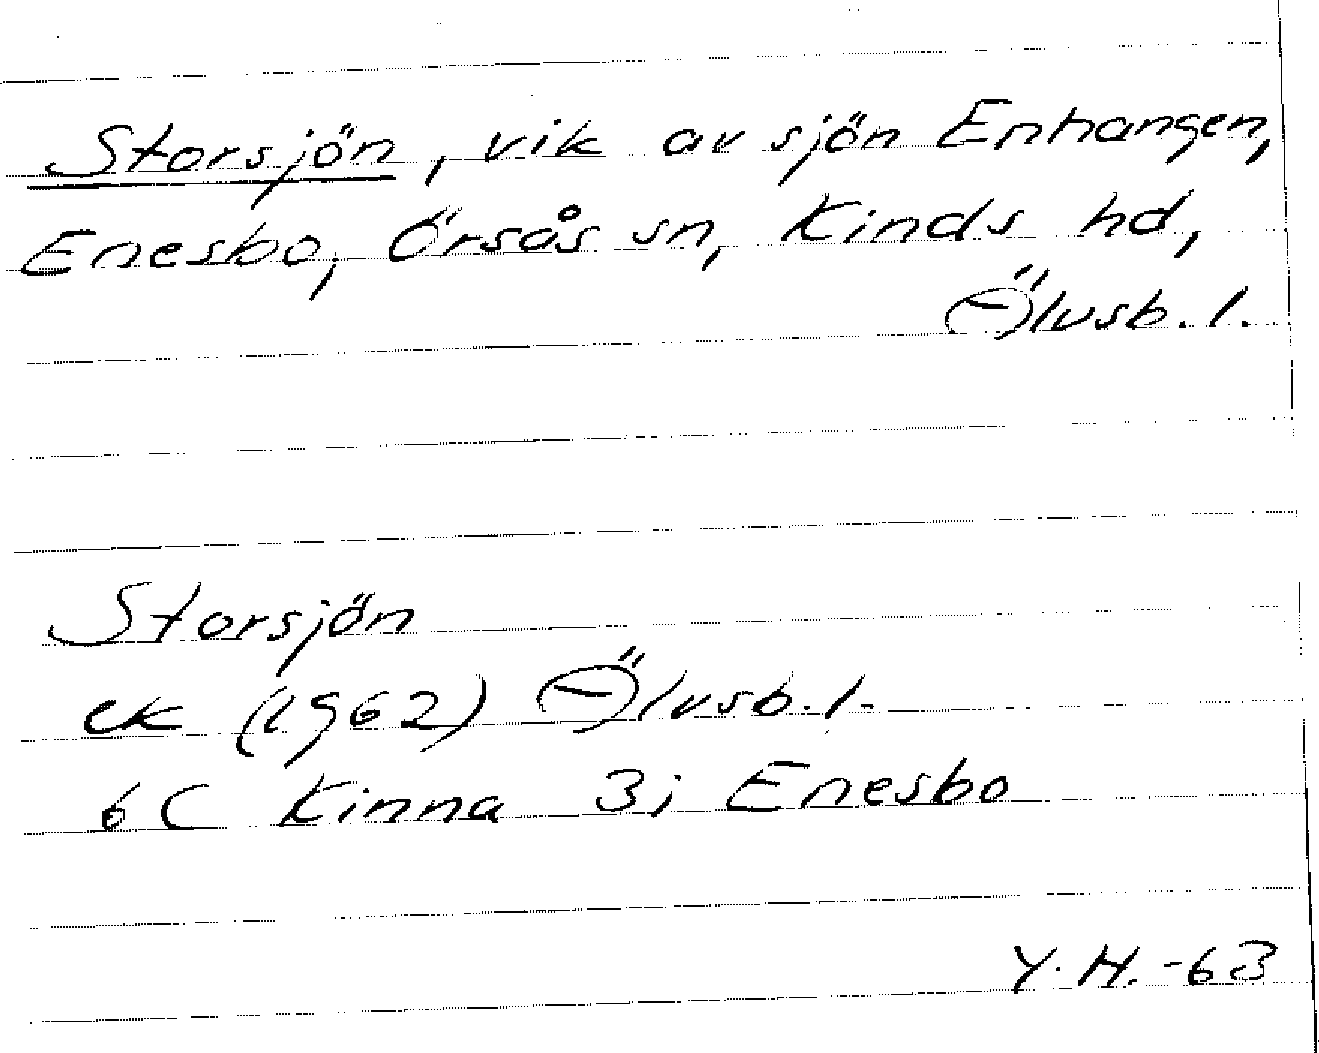 Storsjön, vik av sjön Enhangen,
Enesbo, Örsås sn, Kinds hd,
Älvsb. l.
Storsjön
ek (1962) Älvsb. l.
6C Kinna 3j Enesbo
Y. H. -63